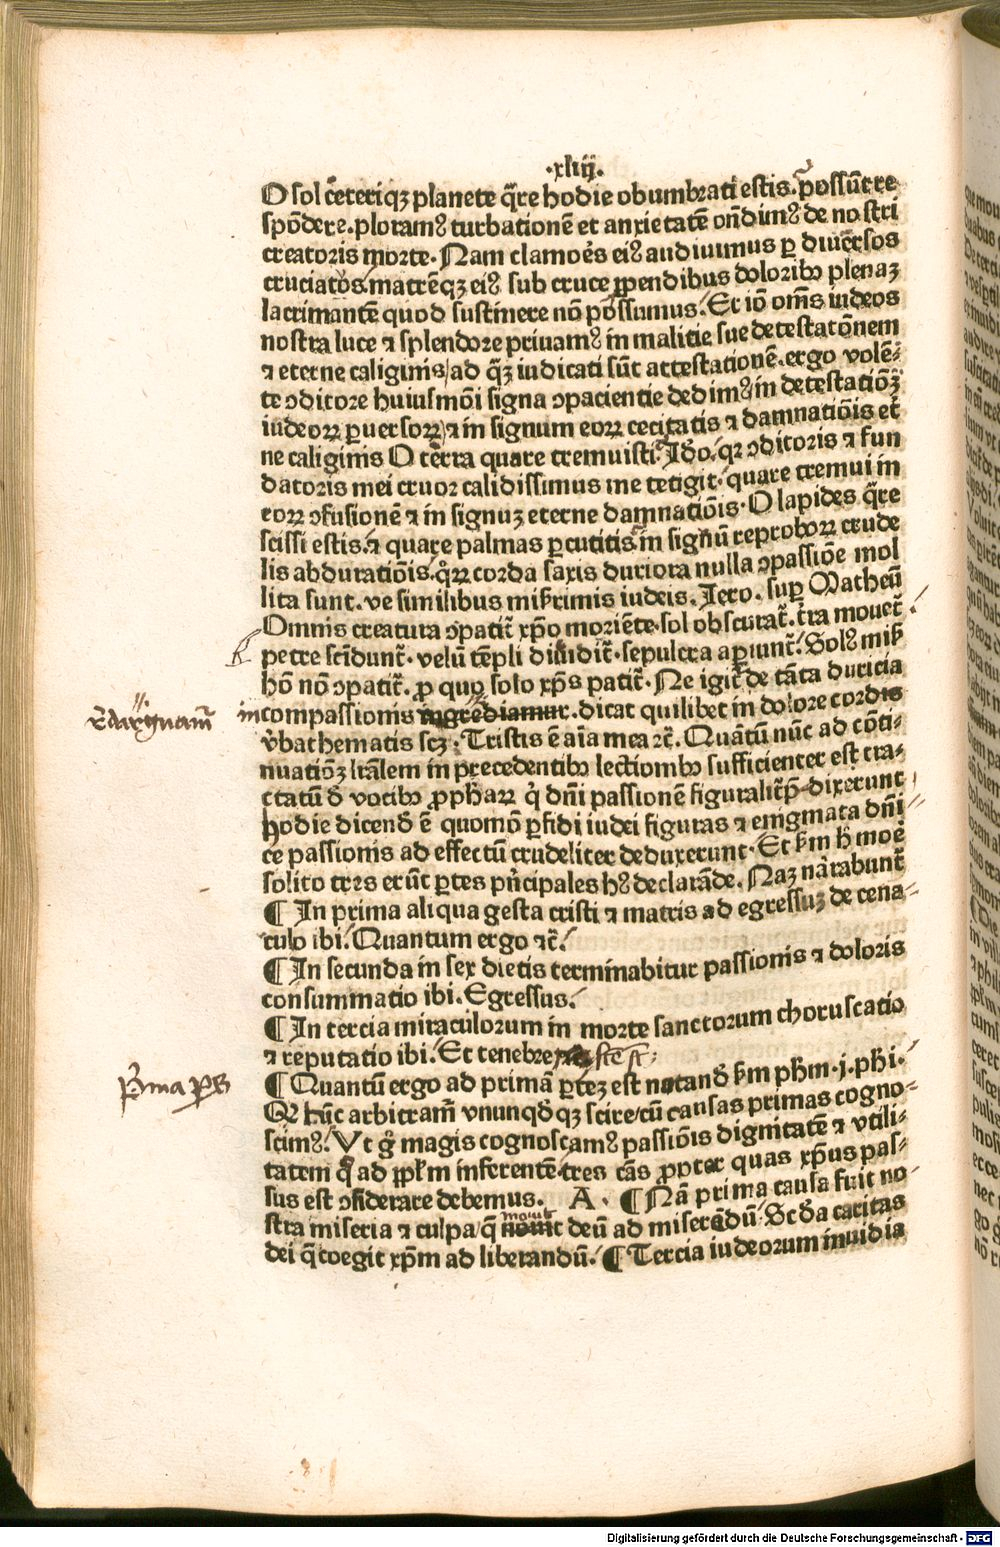 .xliij.
O sol ceteriqꝫ planete q̃re hodie obumbrati estis. possũt re
spõdere. ploramꝰ turbationẽ et anxietatẽ oñdimꝰ de nostri
creatoris morte. Nam clamoẽs eiꝰ audiuimus ꝑ diuersos
cruciatꝰ. matrẽqꝫ eiꝰ sub cruce ꝓpendibus doloribꝰ plenaꝫ
lacrimantẽ quod sustinere nõ possumus. Et iõ om̃s iudeos
nostra luce ⁊ splendore priuamꝰ in malitie sue detestatõnem
⁊ eterne caliginis / ad q̃ꝫ iudicati sũt attestationẽ. ergo volẽ-
te ↄditore huiusmõi signa ↄpacientie dedimꝰ in detestatiõꝫ
iudeoꝝ ꝑuersoꝝ ⁊ in signum eoꝝ cecitatis ⁊ damnatiõis et̃
ne caliginis O terra quare tremuisti. Idõ. qꝛ ↄditoris ⁊ fun
datoris mei cruor calidissimus me tetigit. quare tremui in
eoꝝ ↄfusionẽ ⁊ in signuꝫ eterne damnatiõis. O lapides q̃re
scissi estis. ⁊ quare palmas ꝑcutitis in signũ reproboꝝ crude
lis abduratiõis. q̊ꝝ corda saxis duriora nulla ↄpassiõe mol
lita sunt. ve similibus miẜrimis iudeis. Jero. suꝑ Matheũ
Omnis creatura ↄpatit̃ xp̃o moriẽte. sol obscurat̃. tr̃a mouet̃.
petre scĩdunt̃. velũ tẽpli diuidit̃. sepulcra aꝑiunt̃. Solꝰ miẜ
hõ nõ ↄpatit̃. ꝓ quo solo xp̃s patit̃. Ne igit̃ de tãta duricia
redarguam̃ incompassionis ingrediamur. dicat quilibet in dolore cordis
v̾ba thematis scꝫ. Tristis ẽ aĩa mea ⁊c̃. Quãtũ nũc ad cõti-
nuatiõꝫ lr̃alem in precedentibꝰ lectiombꝰ sufficienter est tra-
ctatũ ð vocibꝰ ꝓphaꝝ q̇ dñi passionẽ figuralit̃ p̃dixerunt
hodie dicendũ ẽ quomõ ꝑfidi iudei figuras ⁊ enigmata dñi-
ce passionis ad effectũ crudeliter deduxerunt. Et ẜm h̃ moẽ
solito tres erũt ꝑtes pñcipales hꝰ declarãde. Naꝫ narabunt̃
¶ In prima aliqua gesta cristi ⁊ matris ad egressuꝫ de cena-
culo ibi. Quantum ergo ⁊c̃.
¶ In secunda in sex dietis terminabitur passionis ⁊ doloris
consummatio ibi. Egressus.
¶ In tercia miraculorum in morte sanctorum choruscatio
⁊ reputatio ibi. Et tenebre
p̃ma ꝑs
¶ Quantũ ergo ad primã ꝑteꝫ est notanð ẜm phm. j. phi.
Qꝫ tũc arbitram̃ vnunqð qꝫ scire / cũ causas primas cogno-
scimꝰ. Vt g̊ magis cognoscamꝰ passiõis dignitatẽ ⁊ vtili-
tatem q̃ ad ppl̃m inferentẽ tres cãs ꝓpter quas xp̃us pas-
sus est ↄsiderare debemus. A. ¶ Nã prima causa fuit no-
stra miseria ⁊ culpa / q̃ mouit deũ ad miserẽdũ. Scð̾a caritas
dei q̃ coegit xp̃m ad liberandũ. ¶ Tercia iudeorum inuidia
Digitalisierung gefördert durch die Deutsche Forschungsgemeinschaft - DFG